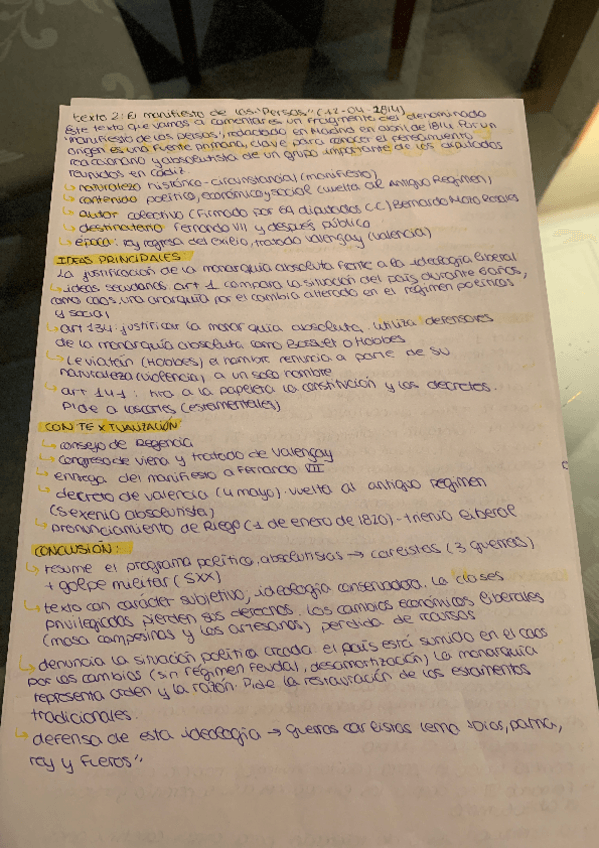 texto 2: El manifiesto de los "Persas" (12-04-1814)
Este texto que vamos a comentar es un fragmento del denominado
"Manifiesto de los persas", redactado en Madrid en abril de 1814. Por un
origen es una fuente primaria, clave para conocer el pensamiento
reaccionario y absolutista de un grupo importante de los diputados
reunidos en Cádiz.
↳ naturaleza histórico-circunstancial (manifiesto)
↳ contenido político, económico y social (vuelta al Antiguo Régimen)
↳ autor colectivo (firmado por 69 diputados CC) Bernardo Mozo Rosales
↳ destinatario: Fernando VII y después público
↳ época: rey regresa del exilio, tratado Valençay (Valencia)
IDEAS PRINCIPALES:
La justificación de la monarquía absoluta frente a la ideología liberal
↳ ideas secundarias art 1 compara la situación del país durante 6 años,
como caos, una anarquía por el cambio alterado en el régimen políticas
y social
↳ art 134: justificar la monarquía absoluta, utiliza defensores
de la monarquía absoluta como Bossuet o Hobbes
↳ Leviatán (Hobbes) el hombre renuncia a parte de su
naturaleza (violencia) a un solo hombre
↳ art 141: tira a la papelera la constitución y los decretos.
Pide a las cortes (estamentales)
CONTEXTUALIZACIÓN
↳ consejo de Regencia
↳ congreso de Viena y tratado de Valençay
↳ entrega del manifiesto a Fernando VII
↳ decreto de valencia (4 mayo): vuelta al antiguo régimen
(sexenio absolutista)
↳ pronunciamiento de Riego (1 de enero de 1820) - trienio liberal
CONCLUSIÓN:
↳ resume el programa político, absolutistas → carlistas (3 guerras)
+ golpe militar (SXX)
↳ texto con carácter subjetivo, ideología conservadora. La clases
privilegiadas pierden sus derechos. Los cambios económicos liberales
(masa campesinas y los artesanos) perdida de recursos
↳ denuncia la situación política creada: el país está sumido en el caos
por los cambios (sin régimen feudal, desamortización) La monarquía
representa orden y la razón. Pide la restauración de los estamentos
tradicionales.
↳ defensa de esta ideología → guerras carlistas lema "Dios, patria,
rey y Fueros".